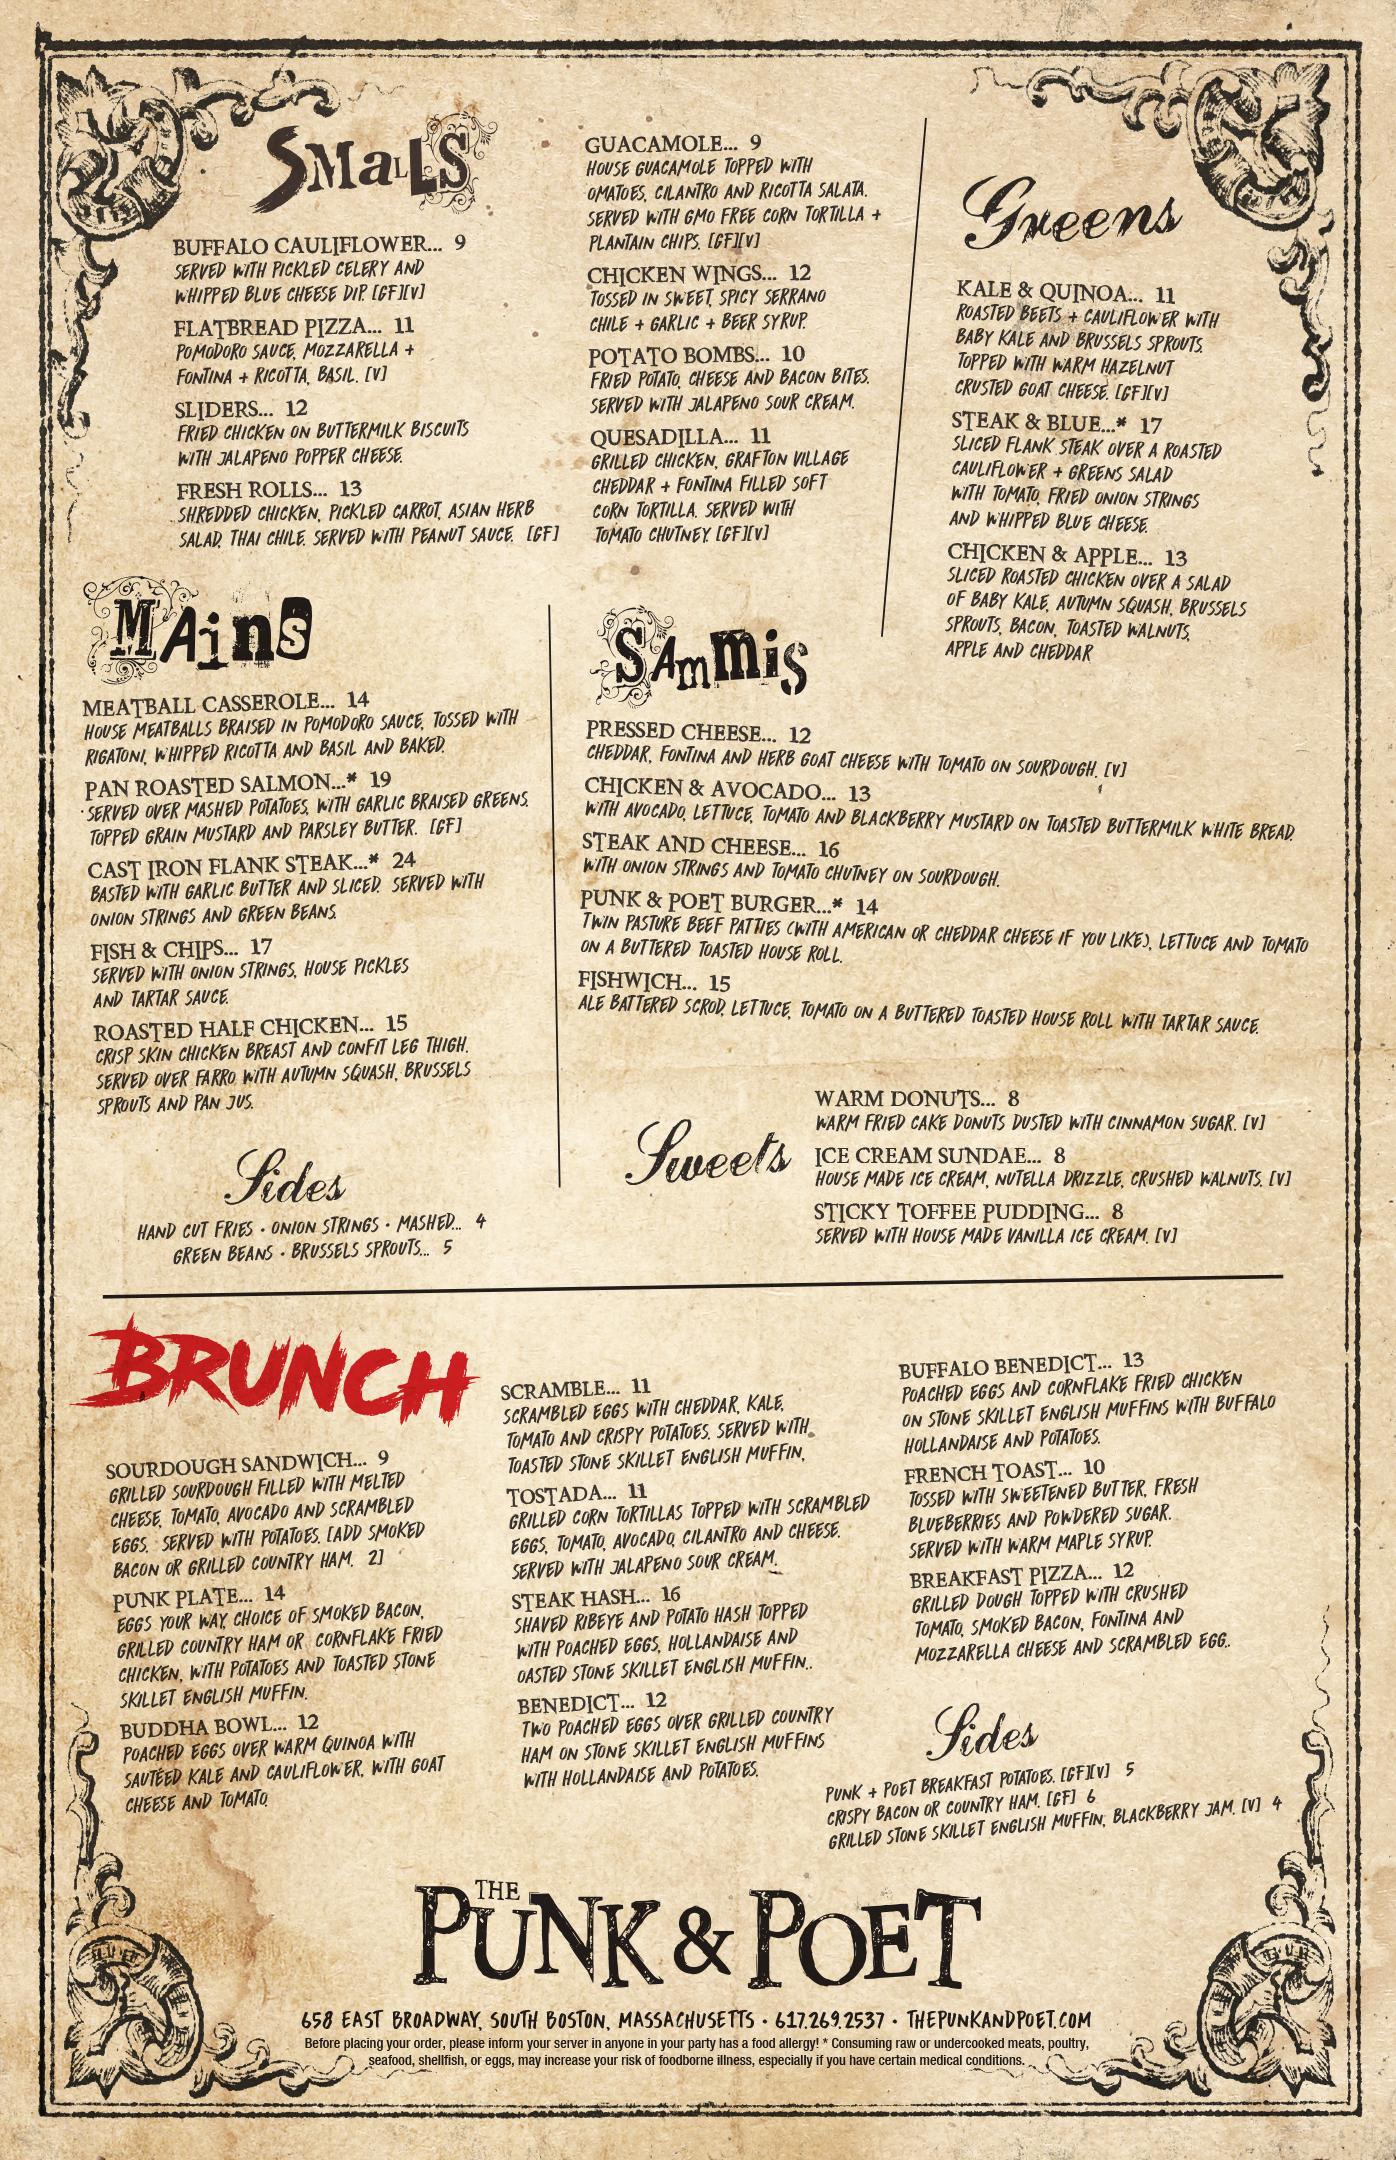 SMaLLS
BUFFALO CAULIFLOWER... 9
SERVED WITH PICKLED CELERY AND
WHIPPED BLUE CHEESE DIP. [GF][V]
FLATBREAD PIZZA... 11
POMODORO SAUCE, MOZZARELLA +
FONTINA + RICOTTA, BASIL. [V]
SLIDERS... 12
FRIED CHICKEN ON BUTTERMILK BISCUITS
WITH JALAPENO POPPER CHEESE.
FRESH ROLLS... 13
SHREDDED CHICKEN, PICKLED CARROT, ASIAN HERB
SALAD, THAI CHILE. SERVED WITH PEANUT SAUCE. [GF]
GUACAMOLE... 9
HOUSE GUACAMOLE TOPPED WITH
OMATOES, CILANTRO AND RICOTTA SALATA.
SERVED WITH GMO FREE CORN TORTILLA +
PLANTAIN CHIPS. [GF][V]
CHICKEN WINGS... 12
TOSSED IN SWEET, SPICY SERRANO
CHILE + GARLIC + BEER SYRUP.
POTATO BOMBS... 10
FRIED POTATO, CHEESE AND BACON BITES.
SERVED WITH JALAPENO SOUR CREAM.
QUESADILLA... 11
GRILLED CHICKEN, GRAFTON VILLAGE
CHEDDAR + FONTINA FILLED SOFT
CORN TORTILLA. SERVED WITH
TOMATO CHUTNEY. [GF][V]
Greens
KALE & QUINOA... 11
ROASTED BEETS + CAULIFLOWER WITH
BABY KALE AND BRUSSELS SPROUTS,
TOPPED WITH WARM HAZELNUT
CRUSTED GOAT CHEESE. [GF][V]
STEAK & BLUE...* 17
SLICED FLANK STEAK OVER A ROASTED
CAULIFLOWER + GREENS SALAD
WITH TOMATO, FRIED ONION STRINGS
AND WHIPPED BLUE CHEESE.
CHICKEN & APPLE... 13
SLICED ROASTED CHICKEN OVER A SALAD
OF BABY KALE, AUTUMN SQUASH, BRUSSELS
SPROUTS, BACON, TOASTED WALNUTS,
APPLE AND CHEDDAR
MAinS
MEATBALL CASSEROLE... 14
HOUSE MEATBALLS BRAISED IN POMODORO SAUCE, TOSSED WITH
RIGATONI, WHIPPED RICOTTA AND BASIL AND BAKED.
PAN ROASTED SALMON...* 19
SERVED OVER MASHED POTATOES, WITH GARLIC BRAISED GREENS.
TOPPED GRAIN MUSTARD AND PARSLEY BUTTER. [GF]
CAST IRON FLANK STEAK...* 24
BASTED WITH GARLIC BUTTER AND SLICED. SERVED WITH
ONION STRINGS AND GREEN BEANS.
FISH & CHIPS... 17
SERVED WITH ONION STRINGS, HOUSE PICKLES
AND TARTAR SAUCE.
ROASTED HALF CHICKEN... 15
CRISP SKIN CHICKEN BREAST AND CONFIT LEG THIGH.
SERVED OVER FARRO WITH AUTUMN SQUASH, BRUSSELS
SPROUTS AND PAN JUS.
Sides
HAND CUT FRIES • ONION STRINGS • MASHED... 4
GREEN BEANS • BRUSSELS SPROUTS... 5
SAmmiS
PRESSED CHEESE... 12
CHEDDAR, FONTINA AND HERB GOAT CHEESE WITH TOMATO ON SOURDOUGH. [V]
CHICKEN & AVOCADO... 13
WITH AVOCADO, LETTUCE, TOMATO AND BLACKBERRY MUSTARD ON TOASTED BUTTERMILK WHITE BREAD.
STEAK AND CHEESE... 16
WITH ONION STRINGS AND TOMATO CHUTNEY ON SOURDOUGH.
PUNK & POET BURGER...* 14
TWIN PASTURE BEEF PATTIES (WITH AMERICAN OR CHEDDAR CHEESE IF YOU LIKE), LETTUCE AND TOMATO
ON A BUTTERED TOASTED HOUSE ROLL.
FISHWICH... 15
ALE BATTERED SCROD, LETTUCE, TOMATO ON A BUTTERED TOASTED HOUSE ROLL WITH TARTAR SAUCE.
Sweets
WARM DONUTS... 8
WARM FRIED CAKE DONUTS DUSTED WITH CINNAMON SUGAR. [V]
ICE CREAM SUNDAE... 8
HOUSE MADE ICE CREAM, NUTELLA DRIZZLE, CRUSHED WALNUTS. [V]
STICKY TOFFEE PUDDING... 8
SERVED WITH HOUSE MADE VANILLA ICE CREAM. [V]
BRUNCH
SOURDOUGH SANDWICH... 9
GRILLED SOURDOUGH FILLED WITH MELTED
CHEESE, TOMATO, AVOCADO AND SCRAMBLED
EGGS. SERVED WITH POTATOES. [ADD SMOKED
BACON OR GRILLED COUNTRY HAM. 2]
PUNK PLATE... 14
EGGS YOUR WAY, CHOICE OF SMOKED BACON,
GRILLED COUNTRY HAM OR CORNFLAKE FRIED
CHICKEN, WITH POTATOES AND TOASTED STONE
SKILLET ENGLISH MUFFIN.
BUDDHA BOWL... 12
POACHED EGGS OVER WARM QUINOA WITH
SAUTÉED KALE AND CAULIFLOWER, WITH GOAT
CHEESE AND TOMATO.
SCRAMBLE... 11
SCRAMBLED EGGS WITH CHEDDAR, KALE,
TOMATO AND CRISPY POTATOES. SERVED WITH
TOASTED STONE SKILLET ENGLISH MUFFIN,
TOSTADA... 11
GRILLED CORN TORTILLAS TOPPED WITH SCRAMBLED
EGGS, TOMATO, AVOCADO, CILANTRO AND CHEESE.
SERVED WITH JALAPENO SOUR CREAM.
STEAK HASH... 16
SHAVED RIBEYE AND POTATO HASH TOPPED
WITH POACHED EGGS, HOLLANDAISE AND
OASTED STONE SKILLET ENGLISH MUFFIN..
BENEDICT... 12
TWO POACHED EGGS OVER GRILLED COUNTRY
HAM ON STONE SKILLET ENGLISH MUFFINS
WITH HOLLANDAISE AND POTATOES.
BUFFALO BENEDICT... 13
POACHED EGGS AND CORNFLAKE FRIED CHICKEN
ON STONE SKILLET ENGLISH MUFFINS WITH BUFFALO
HOLLANDAISE AND POTATOES.
FRENCH TOAST... 10
TOSSED WITH SWEETENED BUTTER, FRESH
BLUEBERRIES AND POWDERED SUGAR.
SERVED WITH WARM MAPLE SYRUP.
BREAKFAST PIZZA... 12
GRILLED DOUGH TOPPED WITH CRUSHED
TOMATO, SMOKED BACON, FONTINA AND
MOZZARELLA CHEESE AND SCRAMBLED EGG..
Sides
PUNK + POET BREAKFAST POTATOES. [GF][V] 5
CRISPY BACON OR COUNTRY HAM. [GF] 6
GRILLED STONE SKILLET ENGLISH MUFFIN, BLACKBERRY JAM. [V] 4
THE PUNK & POET
658 EAST BROADWAY, SOUTH BOSTON, MASSACHUSETTS • 617.269.2537 • THEPUNKANDPOET.COM
Before placing your order, please inform your server in anyone in your party has a food allergy! * Consuming raw or undercooked meats, poultry,
seafood, shellfish, or eggs, may increase your risk of foodborne illness, especially if you have certain medical conditions.